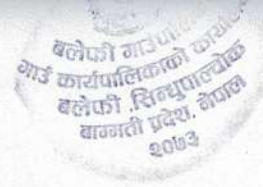 बलेफी गाउँपालिका
गाउँ कार्यपालिकाको कार्यालय
बलेफी ,सिन्धुपाल्चोक
बागमती प्रदेश, नेपाल
२०७३